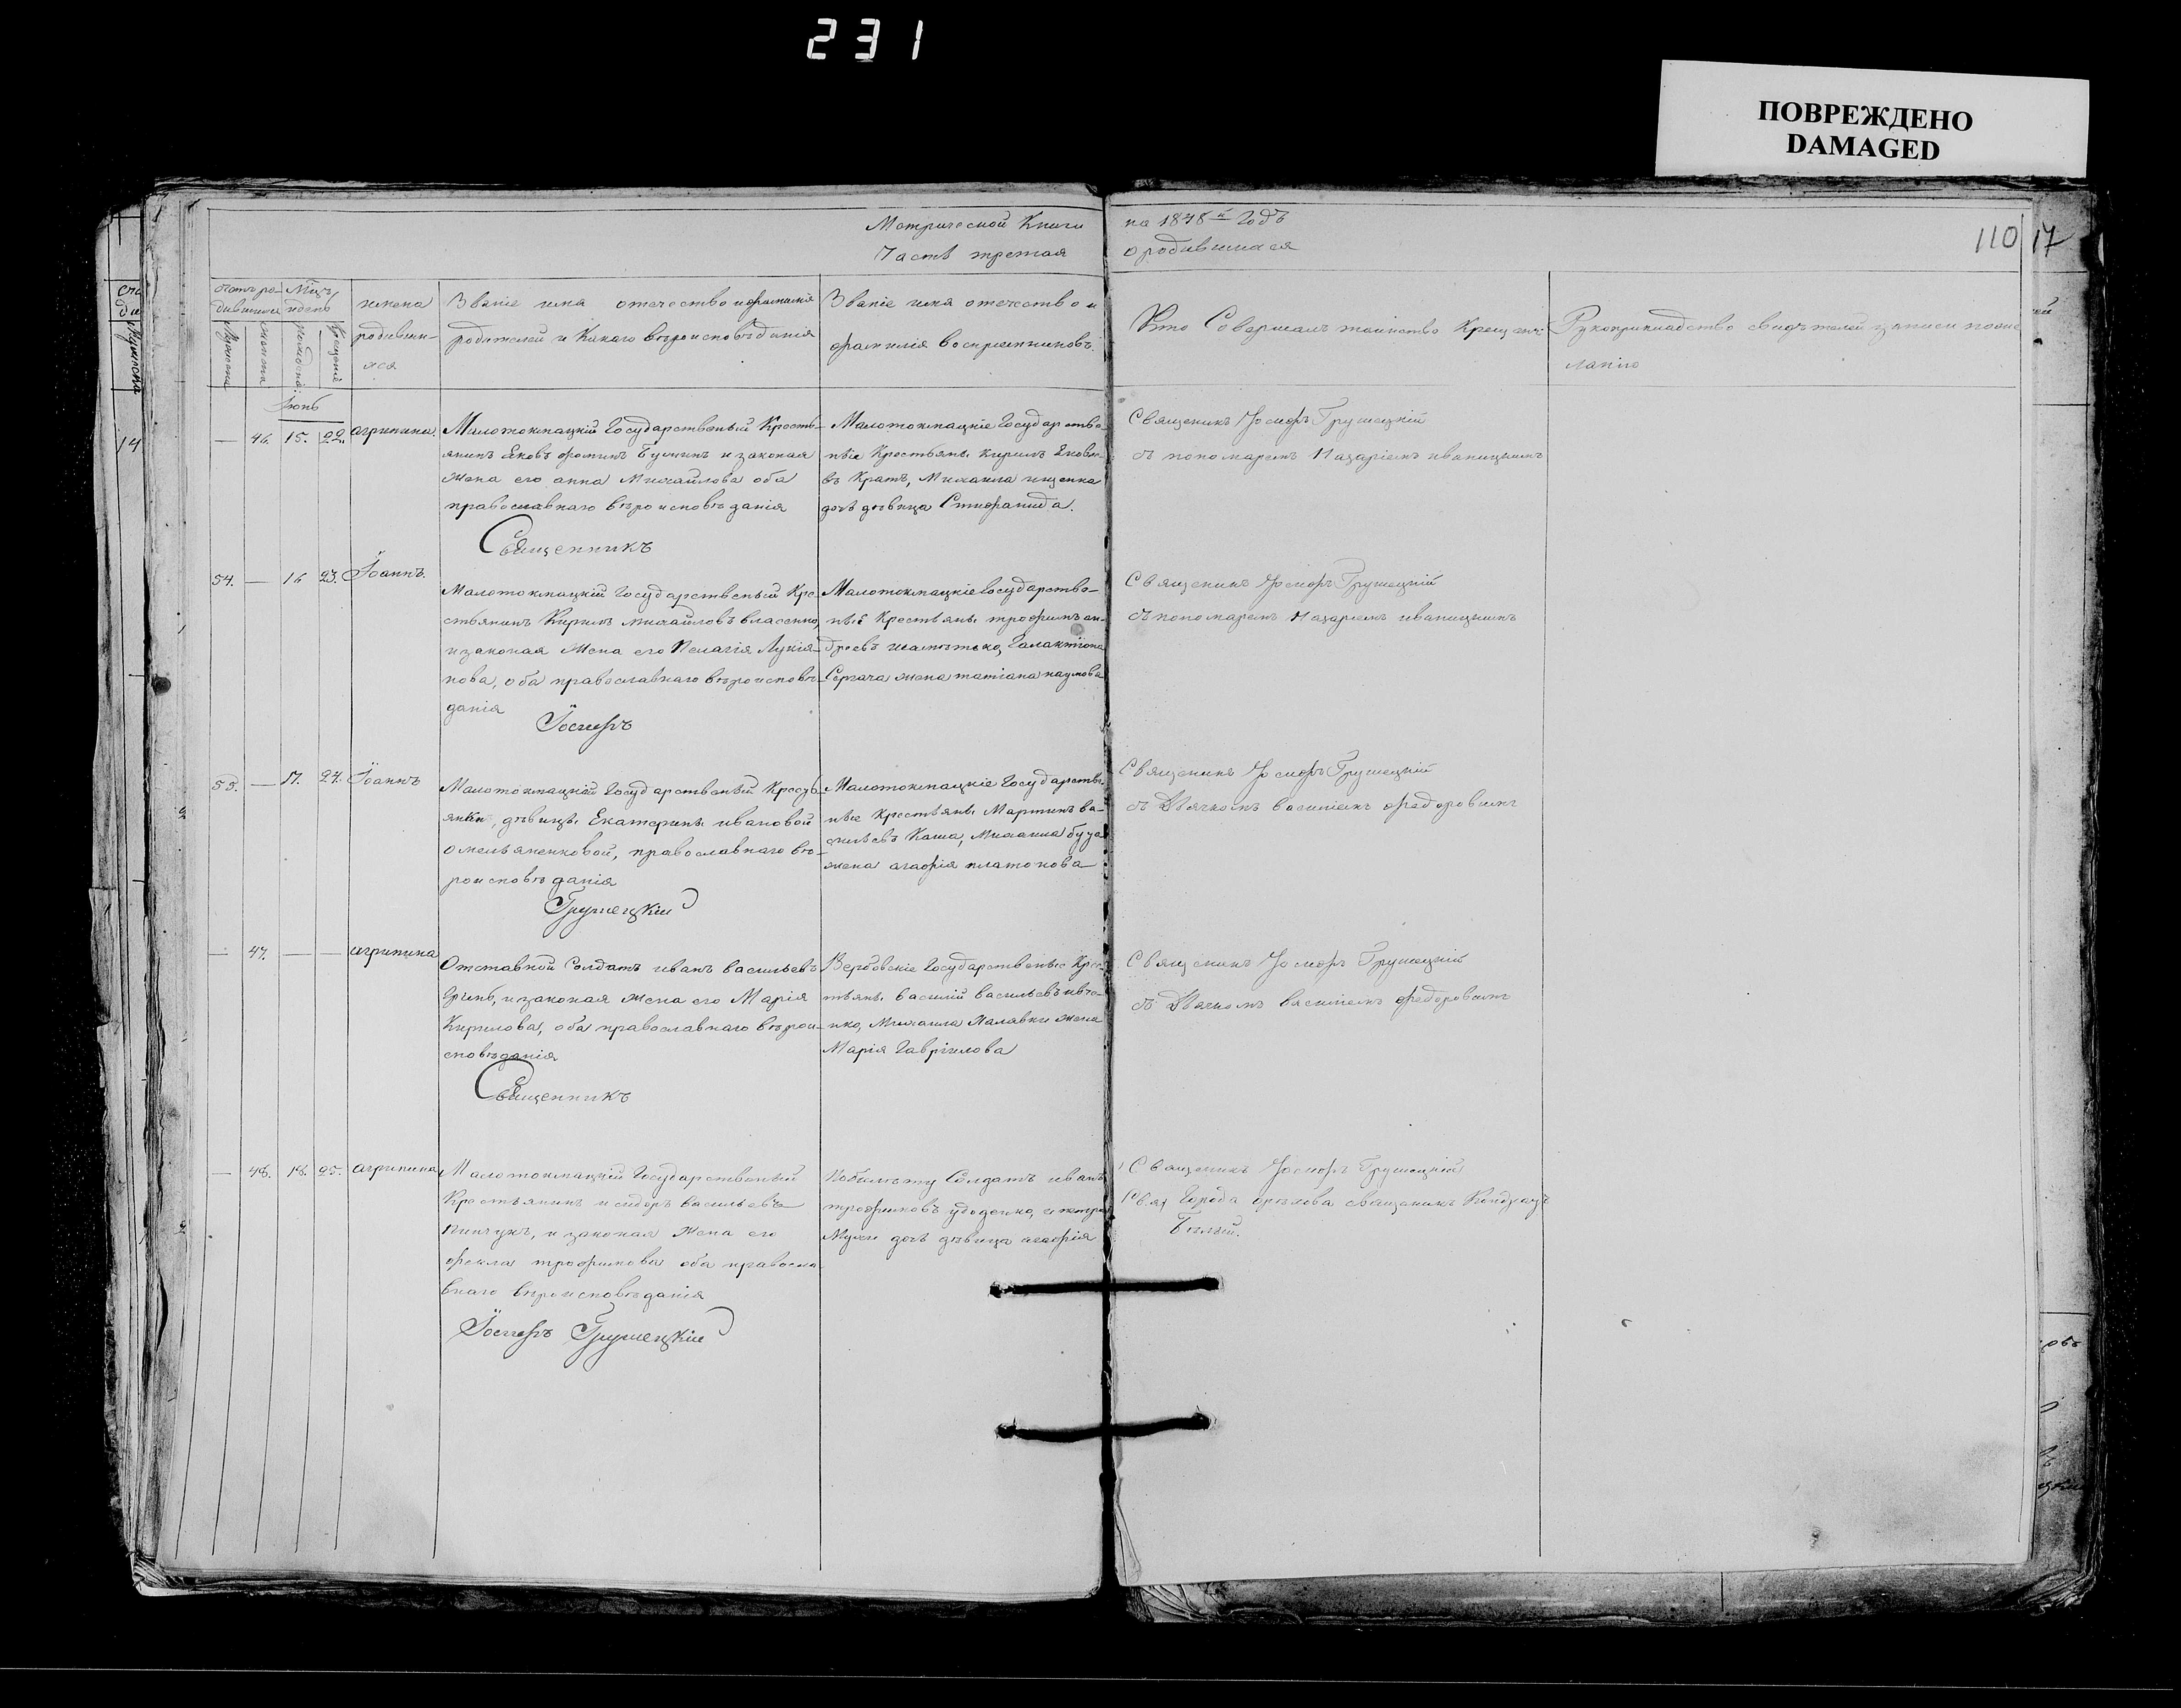 231
ПОВРЕЖДЕНО
DAMAGED
Метрической Книги
Часть третая
на 1848й Годъ
о родившихся
110
17
Мужеска
Женска
рождения
Крещения
имена
родивши-
хся
Званіе имя отечество и фамилія
родителей и Какаго вѣроисповѣданія
Званіе имя отечество и
фамилія воспрiемниковъ
Кто Совершалъ таинство Крещенія
Рукоприкладство свидѣтелей записи по же
ланію
Іюнь
— 46. 15. 22. агрипина.
Малотокмацкій Государственый Кресть-
янинъ Яковъ фоминъ и законая
Жена его анна Михайлова оба
православнаго вѣроисповѣданія
Священникъ
Малотокмацкіе Государстве-
ные Крестьяне Кирилъ Яковле-
въ Кратъ, Михаила ищенка
дочь дѣвица Стифанида.
Священикъ Іосифъ Грушецкій
съ пономаремъ Назаріемъ иваницкимъ
54. — 16 23. Іоаннъ.
Малотокмацкій Государственый Кре-
стьянинъ Кирилъ михайловъ власенко
и законая Жена его Пелагія Лукія-
нова, оба православнаго вѣроисповѣ-
данія
Іосифъ
Малотокмацкіе Государстве-
ные Крестьяне трофимъ ан-
дреевъ Галактіона
Сергача жена татіана наумова
Священикъ Іосифъ Грушецкій
съ пономаремъ Назаріемъ иваницкимъ
55. — 17. 24. Іоаннъ
Малотокмацкой Государственый Кресть-
янки, дѣвицы Екатерины ивановой
омельяненковой, православнаго вѣ-
роисповѣданія
Грушецкій
Малотокмацкіе Государстве-
ные Крестьяне Мартинъ ва-
сильевъ Каша, Михаила
жена агафія платонова
Священикъ Іосифъ Грушецкій
съ Дьячкомъ василіемъ федоровымъ
— 47. — — агрипина
Отставной Солдатъ иванъ васильевъ
и законая жена его Марія
Кирилова, оба православнаго вѣрои-
сповѣданія
Священникъ
Вербовскіе Государственые Крес-
тьяне василій васильевъ ивче-
нко, Михаила Малявки жена
Марія Гавріилова
Священикъ Іосифъ Грушецкій
съ Дьячкомъ василіемъ федоровымъ
— 48. 18. 25. агрипина
Малотокмацкій Государственый
Крестьянинъ исидоръ васильевъ
Пинчукъ, и законая жена его
фекла трофимова оба правосла-
внаго вѣроисповѣданія
Іосифъ Грушецкій
Солдатъ иванъ
трофимовъ удоденко, и петра
Мухи дочь дѣвица агафія
Священикъ Іосифъ Грушецкій
Города орѣхова священикъ Кондратъ
Бѣлый.